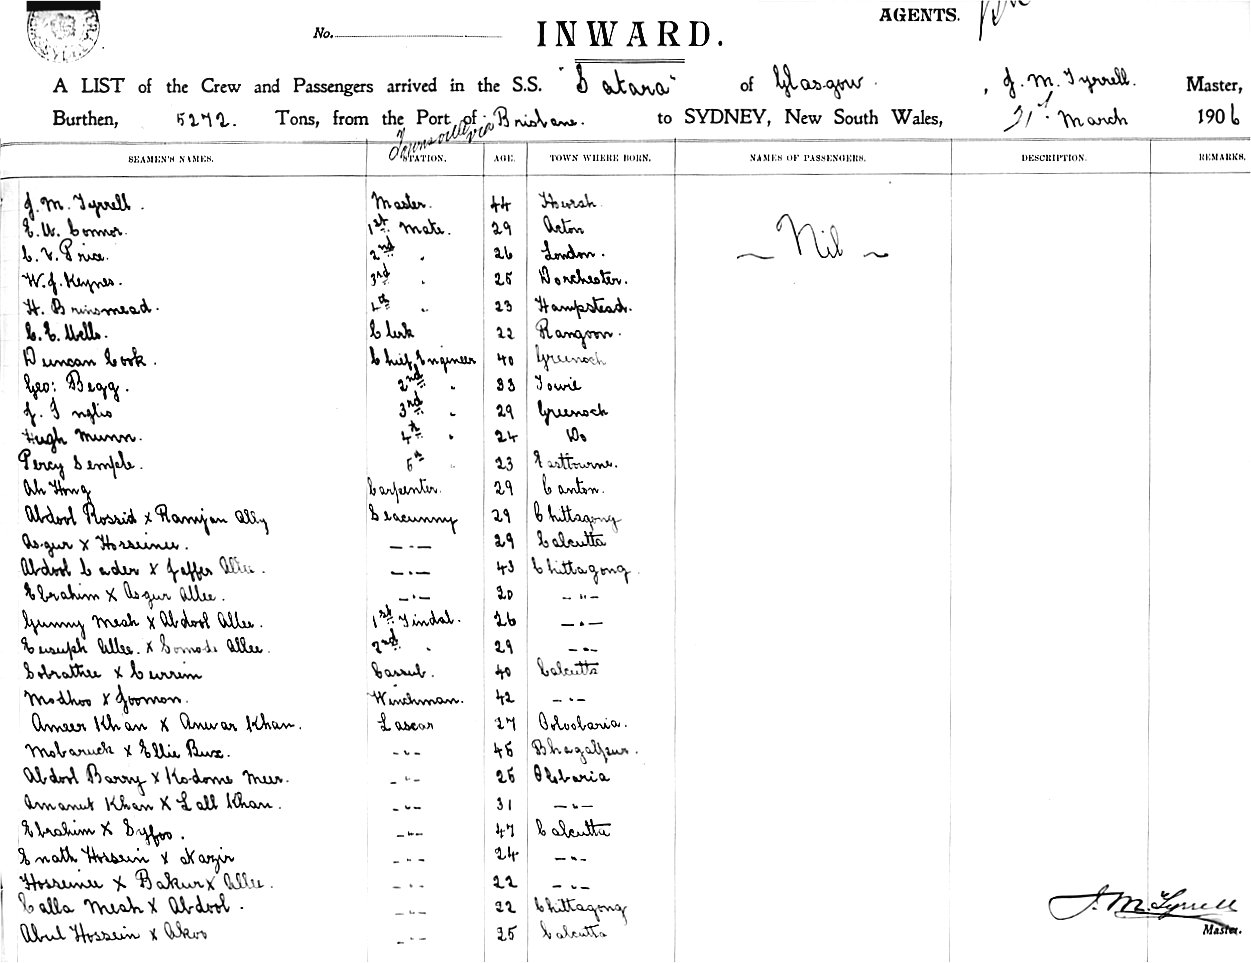 AGENTS.
No.
INWARD.
A LIST of the Crew and Passengers arrived in the S.S. "Satara" of Glasgow, J. M. Tyrrell. Master,
Burthen, 5272. Tons, from the Port of Townsville via Brisbane. to SYDNEY, New South Wales, 31st March 1906
SEAMEN'S NAMES. STATION. AGE. TOWN WHERE BORN. NAMES OF PASSENGERS. DESCRIPTION. REMARKS.
J. M. Tyrrell. Master. 44
E. W. Connor. 1st Mate. 29 Acton
C. V. Price. 2nd " 26 London.
W. J. Keynes. 3rd " 25 Dorchester.
~ Nil ~
H. Brinsmead. 4th " 23 Hampstead.
C. E. Wells. Clerk 22 Rangoon.
Duncan Cook. Chief Engineer 40 Greenock
Geo: Begg. 2nd " 33 Towie
J. Inglis 3rd " 29 Greenock
Hugh Munn. 4th " 24 Do
Percy Semple. 5th " 23 Eastbourne.
Ah Hong Carpenter. 29 Canton.
Abdool Rossid x Ramjan Ally Seacunny 29 Chittagong
Asgur x Hosseinee. —"— 29 Calcutta
Abdool Cader x Jaffer Allee. —"— 43 Chittagong.
Ebrahim x Asgur Allee. —"— 30 —"—
Gunny Meah x Abdool Allee. 1st Tindal. 26 —"—
Eusuph Allee. x Allee. 2nd " 29 —"—
Sobrattee x Currim Cassub. 40 Calcutta
Modhoo x Joomon. Winchman. 42 —"—
Ameer Khan x Anwar Khan. Lascar 27 Ooloobaria.
Mobaruck x Ellie Bux. —"— 45 Bhagalpur.
Abdool Barry x Kodome Meer. —"— 25
Amanut Khan x Lall Khan. —"— 31 —"—
Ebrahim x Syfoo. —"— 47 Calcutta
Enath Hossein x Nazir —"— 24 —"—
Hosseinee x Bakur x Allee. —"— 22 —"—
Calla Meah x Abdool. —"— 22 Chittagong
J. M. Tyrrell
Master.
Abul Hossein x Akoo —"— 25 Calcutta